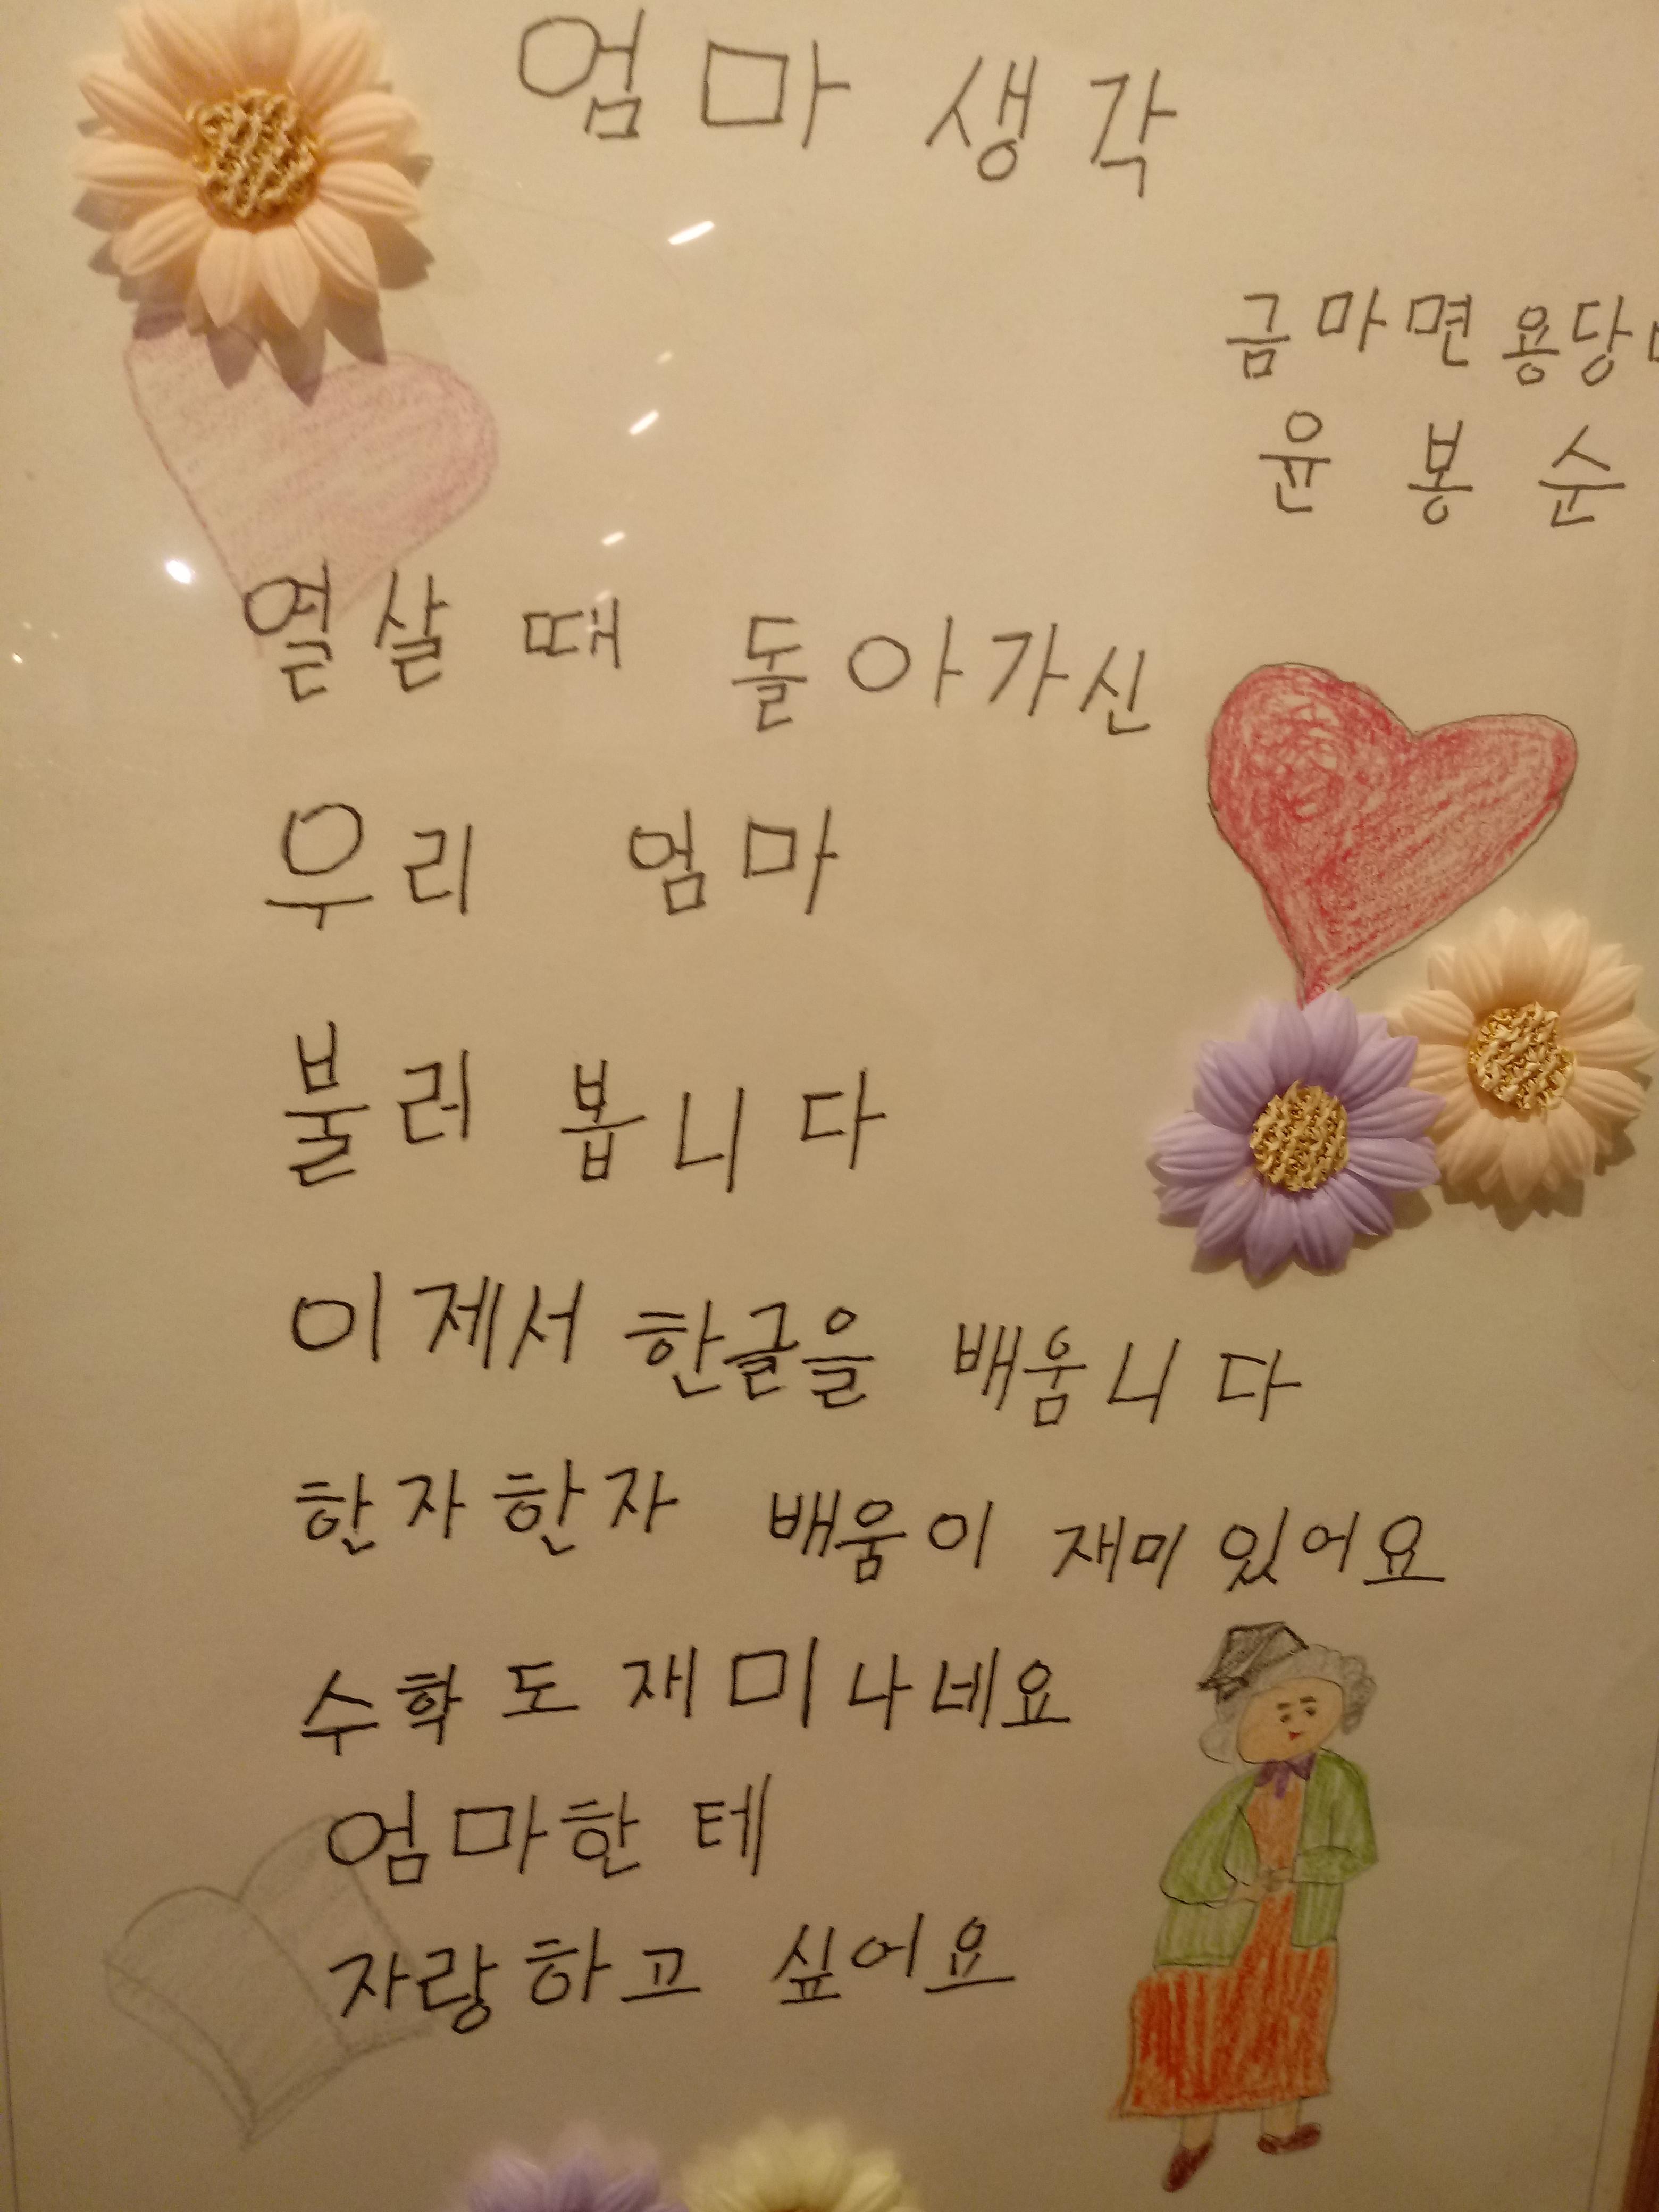 엄마 생각
금마면 용당
윤봉순
열살 때 돌아가신
우리 엄마
불러 봅니다
이제서 한글을 배웁니다
한자한자 배움이 재미있어요
수학도 재미나네요
엄마한테
자랑하고 싶어요